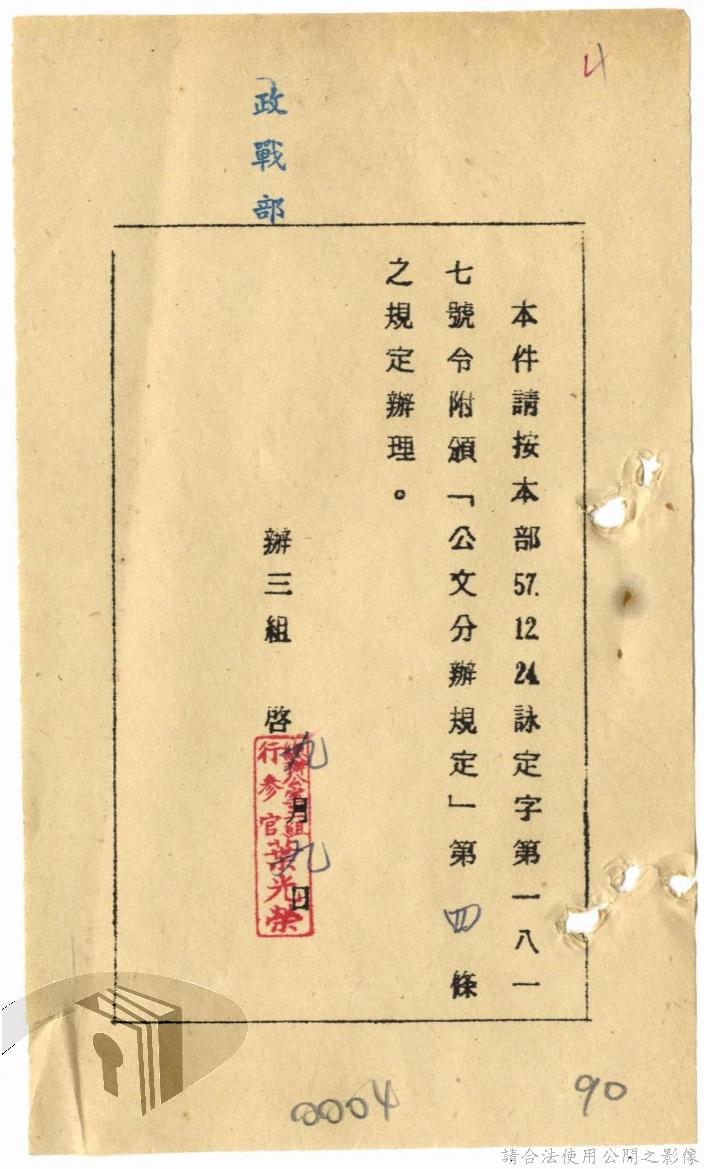 4
政戰部
本件請按本部57.12.24.詠定字第一八一
七號令附頒「公文分辦規定」第四條
之規定辦理。
辦三組 啓
九月九日
行參官葉光榮
0004
90
請合法使用公開之影像